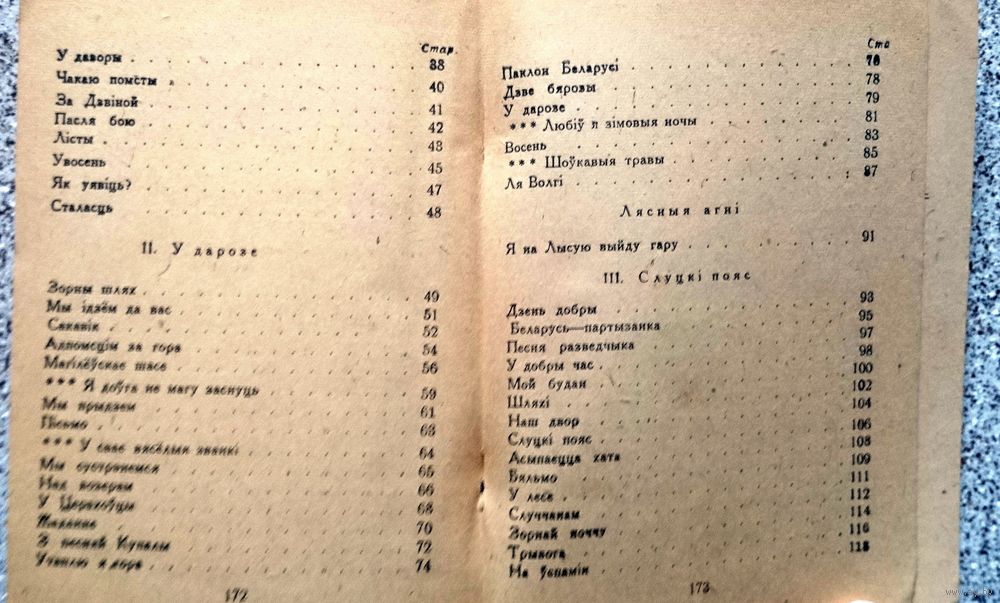 Стар.
У даворы 38
Чакаю помсты 40
За Дзвіной 41
Пасля бою 42
Лісты 43
Увосень 45
Як уявіць? 47
Сталасць 48
II. У дарозе
Зорны шлях 49
Мы ідзём да вас 51
Сакавік 52
Адпомсцім за гора 54
Магілёўскае шасе 56
*** Я доўга не магу заснуць 59
Мы прыдзем 61
Пісьмо 63
*** У свае вясёлыя званкі 64
Мы сустрэнемся 65
Над возерам 66
У Церахоўцы 68
70
З песняй Купалы 72
74
172
Ста
Паклон Беларусі 76
Дзве бярозы 78
У дарозе 79
*** Любіў я зімовыя ночы 81
Восень 83
*** Шоўкавыя травы 85
Ля Волгі 87
Лясныя агні
Я на Лысую выйду гару 91
III. Слуцкі пояс
Дзень добры 93
Беларусь—партызанка 95
Песня разведчыка 97
У добры час 98
Мой будан 100
Шляхі 102
Наш двор 104
Слуцкі пояс 106
Асыпаецца хата 108
Бяльмо 109
У лесе 111
Случчанам 112
Зорнай ноччу 114
Трывога 116
На ўспамін 118
173